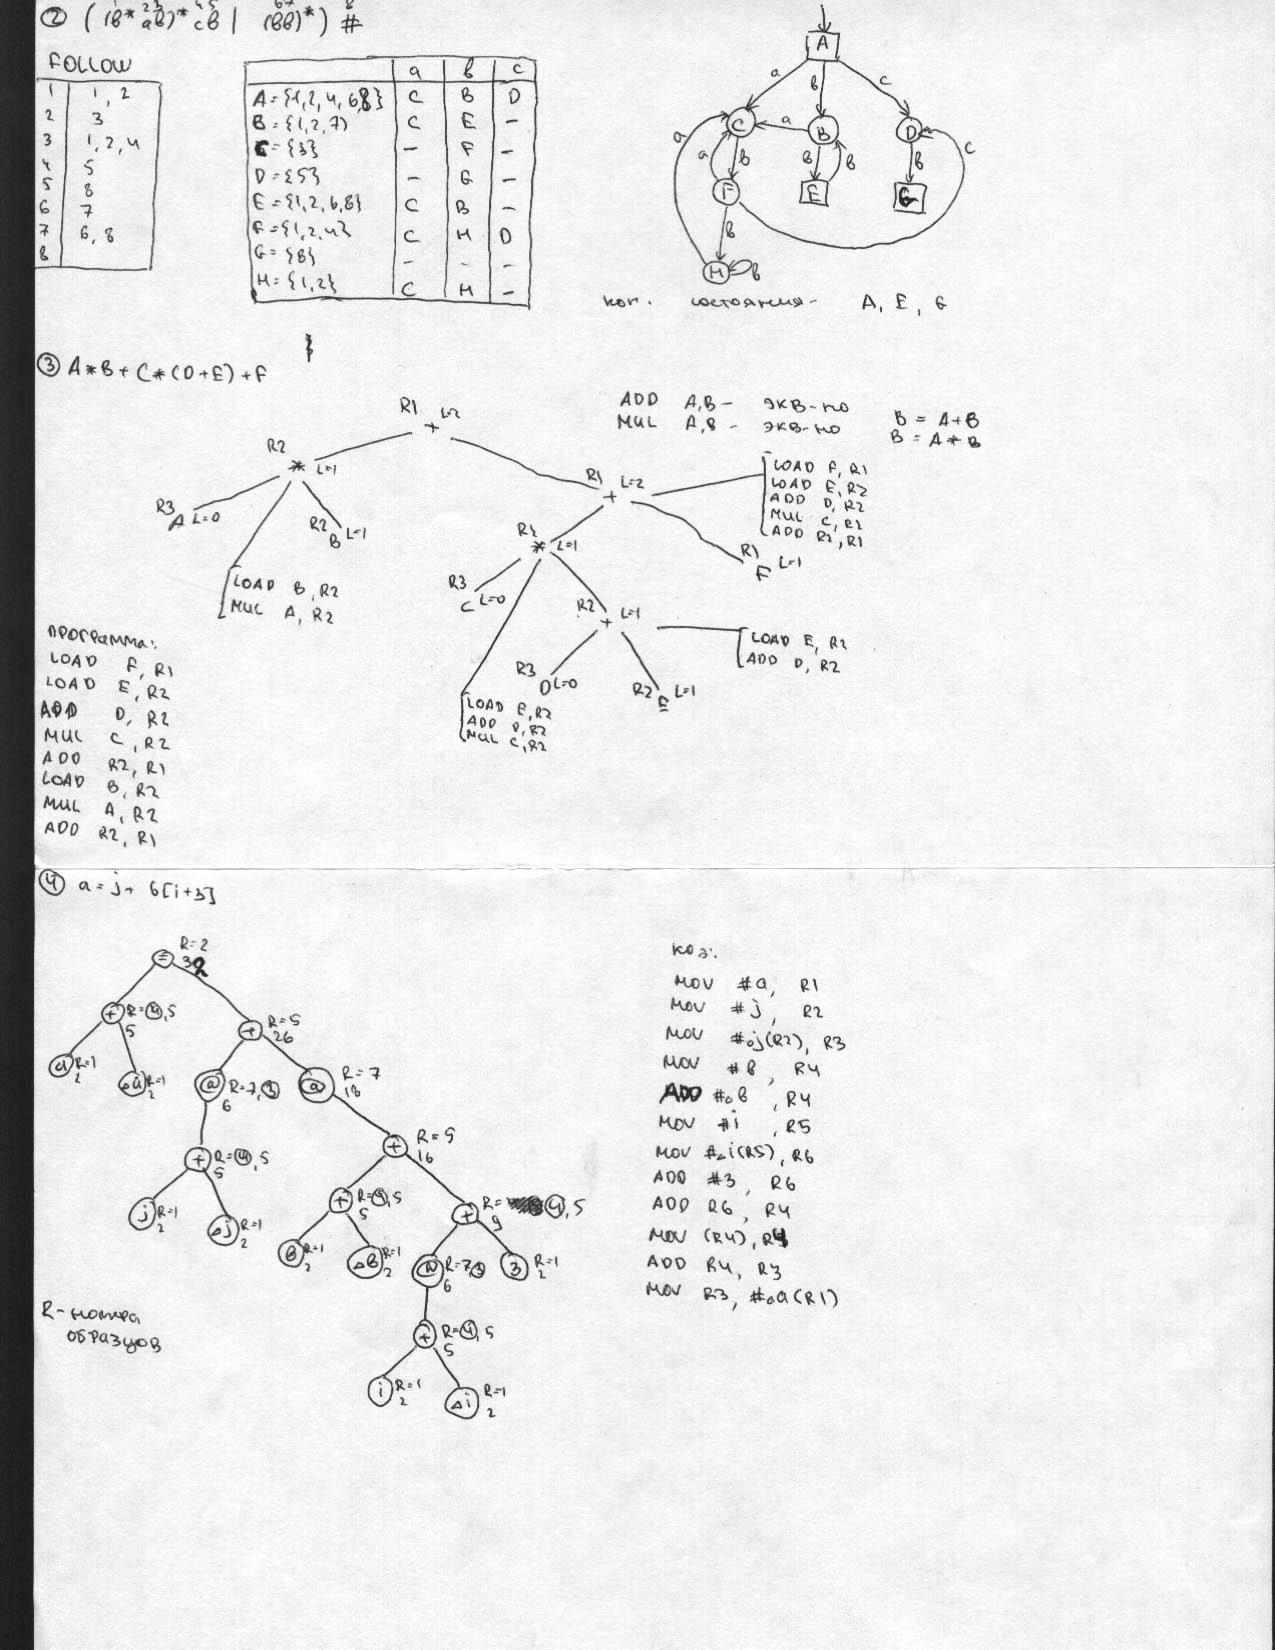 ② (( в* aв)* cв | (вв)*) #
1 2 3 4 5 6 7 8
FOLLOW
1 1, 2
2 3
3 1, 2, 4
4 5
5 8
6 7
7 6, 8
8
a в c
A = {1, 2, 4, 6, 8} C B D
B = {1, 2, 7} C E -
C = {3} - F -
D = {5} - G -
E = {1, 2, 6, 8} C B -
F = {1, 2, 4} C H D
G = {8} - - -
H = {1, 2} C H -
A
a в c
C a B D
a a в в в в c
F E G
в
H в
кон. состояния - A, E, G
③ A * B + C * (D + E) + F
ADD A, B - экв-но B = A + B
MUL A, B - экв-но B = A * B
R1 + L=2
R2 * L=1
R3 A L=0
R2 B L=1
LOAD B, R2
MUL A, R2
R1 + L=2
LOAD F, R1
LOAD E, R2
ADD D, R2
MUL C, R2
ADD R2, R1
R2 * L=1
R1 F L=1
R3 C L=0
R2 + L=1
LOAD E, R2
ADD D, R2
R3 D L=0
R2 E L=1
LOAD E, R2
ADD D, R2
MUL C, R2
Программа:
LOAD F, R1
LOAD E, R2
ADD D, R2
MUL C, R2
ADD R2, R1
LOAD B, R2
MUL A, R2
ADD R2, R1
④ a = j + в[i+3]
= R=2
32
+ R=④, 5
5
+ R=5
26
a R=1
2
△a R=1
2
@ R=7, ③
6
@ R=7
18
+ R=④, 5
5
+ R=5
16
j R=1
2
△j R=1
2
+ R=④, 5
5
+ R= ④, 5
9
в R=1
2
△в R=1
2
@ R=7, ③
6
3 R=1
2
+ R=④, 5
5
i R=1
2
△i R=1
2
R - номера
образцов
код:
MOV #a, R1
MOV #j, R2
MOV #△j(R2), R3
MOV #в, R4
ADD #△в, R4
MOV #i, R5
MOV #△i(R5), R6
ADD #3, R6
ADD R6, R4
MOV (R4), R4
ADD R4, R3
MOV R3, #△a(R1)